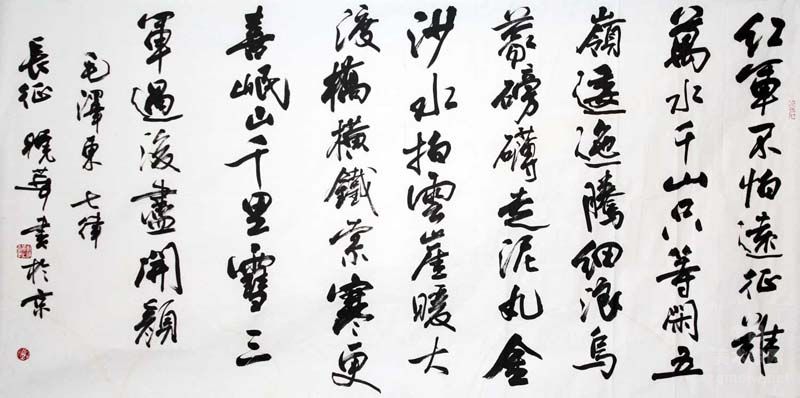 紅軍不怕遠征難
萬水千山只等閑五
嶺逶迤騰細浪烏
蒙磅礴走泥丸金
沙水拍雲崖暖大
渡橋橫鐵索寒更
喜岷山千里雪三
軍過後盡開顏
毛澤東 七律
長征 曉華書於京